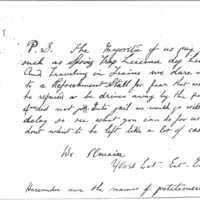 P.S. The Majority of us pay
such as Spring Trap License dog Lic
And traveling in Trains we dare n
to a Refreshment Stall for fear that w
be refused or be driven away by the po
it does not
delay so see what you can do for us
dont want to be left like a lot of cas
We Remain
Yours Ect- Ect- E
Hereunder are the names of petitioners